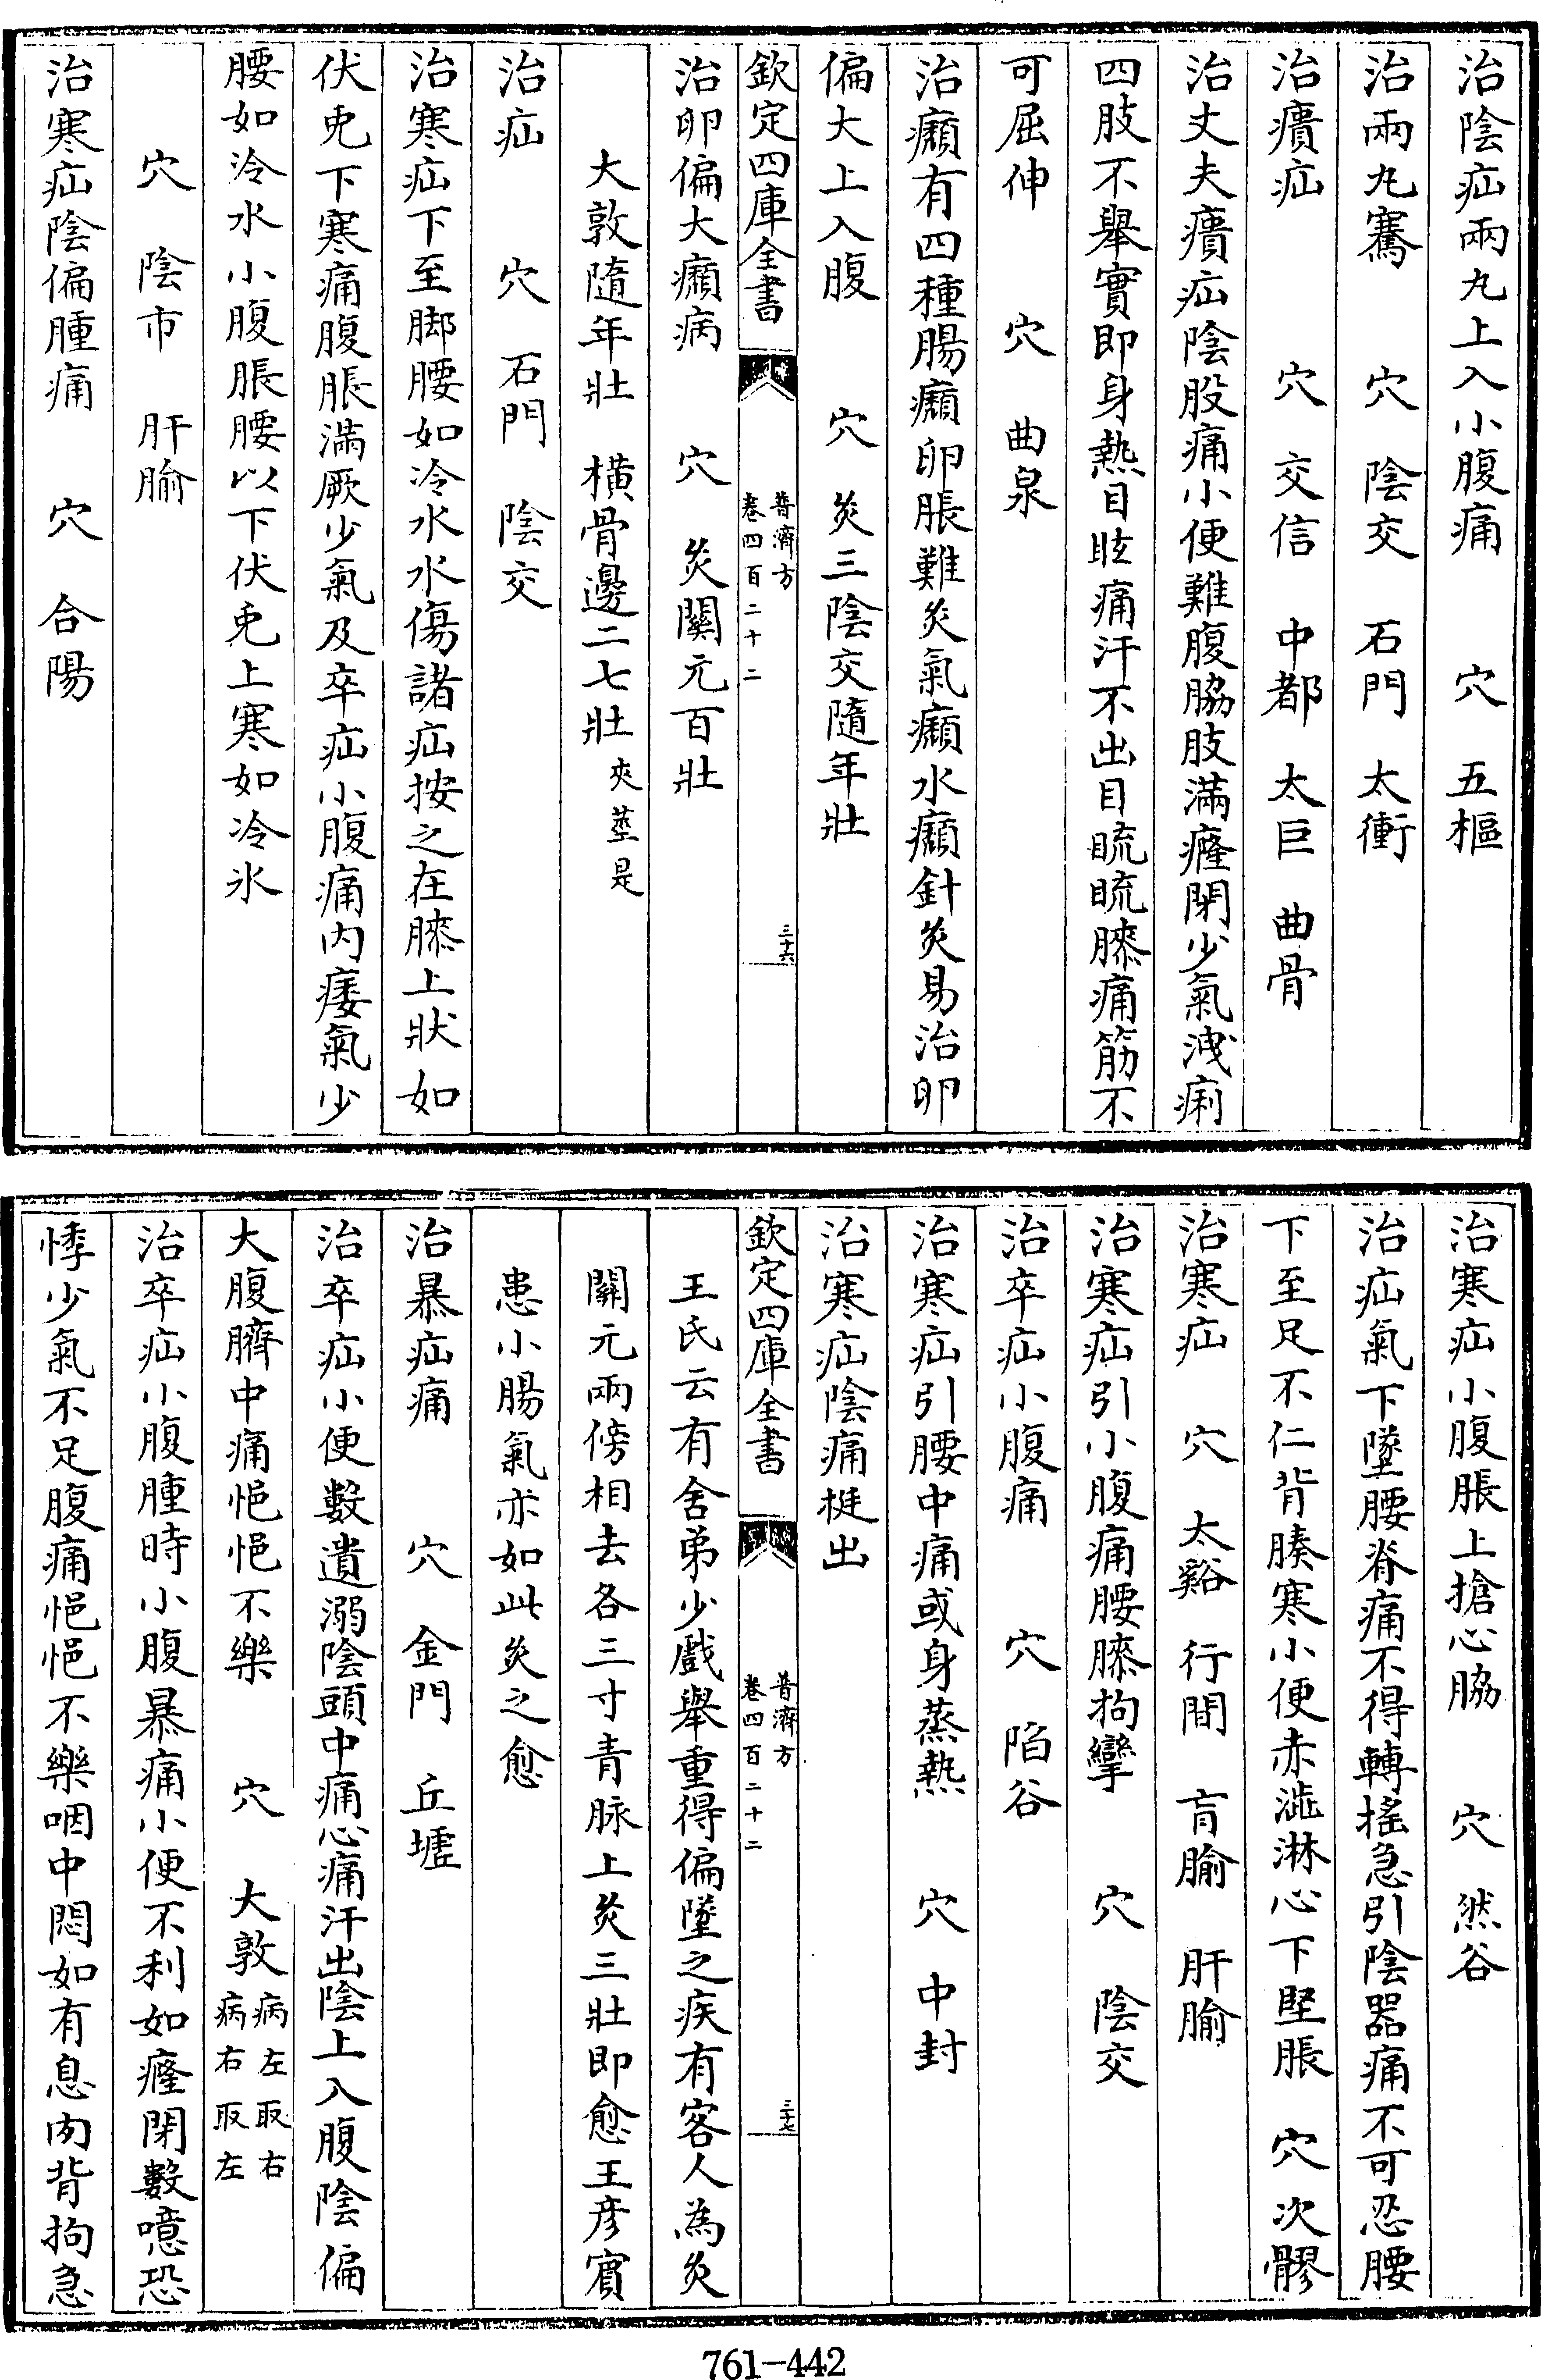 治陰疝兩丸上入小腹痛　穴　五樞
治兩丸騫　穴　陰交　石門　太衝
治㿉疝　穴　交信　中都　太巨　曲骨
治丈夫㿉疝陰股痛小便難腹脇肢滿癃閉少氣洩痢
四肢不舉實即身熱目眩痛汗不出目䀮䀮膝痛筋不
可屈伸　穴　曲泉
治癩有四種腸癩卵脹難灸氣癩水癩針灸易治卵
偏大上入腹　穴　灸三陰交隨年壯
欽定四庫全書　普濟方　卷四百二十二　三十六
治卵偏大癩病　穴　灸關元百壯
大敦隨年壯　橫骨邊二七壯夾莖是
治疝　穴　石門　陰交
治寒疝下至脚腰如冷水水傷諸疝按之在膝上狀如
伏兎下寒痛腹脹滿厥少氣及卒疝小腹痛内痿氣少
腰如冷水小腹脹腰以下伏兎上寒如冷氷
穴　陰市　肝腧
治寒疝陰偏腫痛　穴　合陽
治寒疝小腹脹上搶心脇　穴　然谷
治疝氣下墜腰脊痛不得轉搖急引陰器痛不可忍腰
下至足不仁背腠寒小便赤澁淋心下堅脹　穴　次髎
治寒疝　穴　太谿　行間　肓腧　肝腧
治寒疝引小腹痛腰膝拘攣　穴　陰交
治卒疝小腹痛　穴　陷谷
治寒疝引腰中痛或身蒸熱　穴　中封
治寒疝陰痛梃出
欽定四庫全書　普濟方　卷四百二十二　三十七
王氏云有舍弟少戲舉重得偏墜之疾有客人為灸
關元兩傍相去各三寸青脉上灸三壯即愈王彦賓
患小腸氣亦如此灸之愈
治暴疝痛　穴　金門　丘墟
治卒疝小便數遺溺陰頭中痛心痛汗出陰上入腹陰偏
大腹臍中痛悒悒不樂　穴　大敦病左取右病右取左
治卒疝小腹腫時小腹暴痛小便不利如癃閉數噫恐
悸少氣不足腹痛悒悒不樂咽中悶如有息肉背拘急
761-442